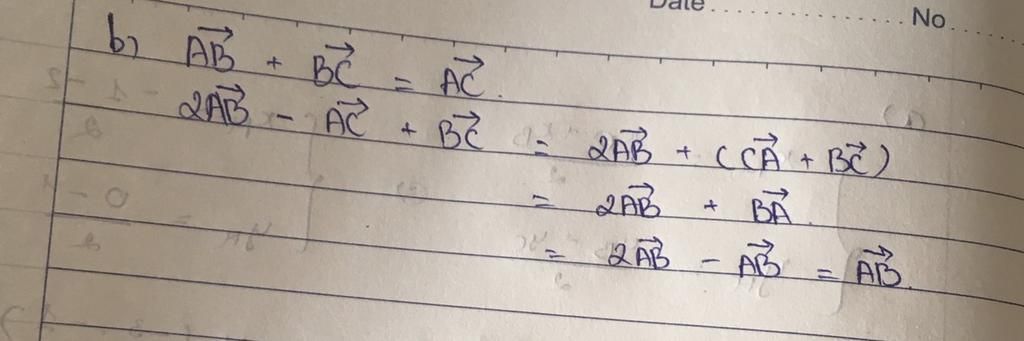 Date .................... No. ........
b) $\overrightarrow{AB} + \overrightarrow{BC} = \overrightarrow{AC}$.
$2\overrightarrow{AB} - \overrightarrow{AC} + \overrightarrow{BC} = 2\overrightarrow{AB} + (\overrightarrow{CA} + \overrightarrow{BC})$
$= 2\overrightarrow{AB} + \overrightarrow{BA}$.
$= 2\overrightarrow{AB} - \overrightarrow{AB} = \overrightarrow{AB}$.